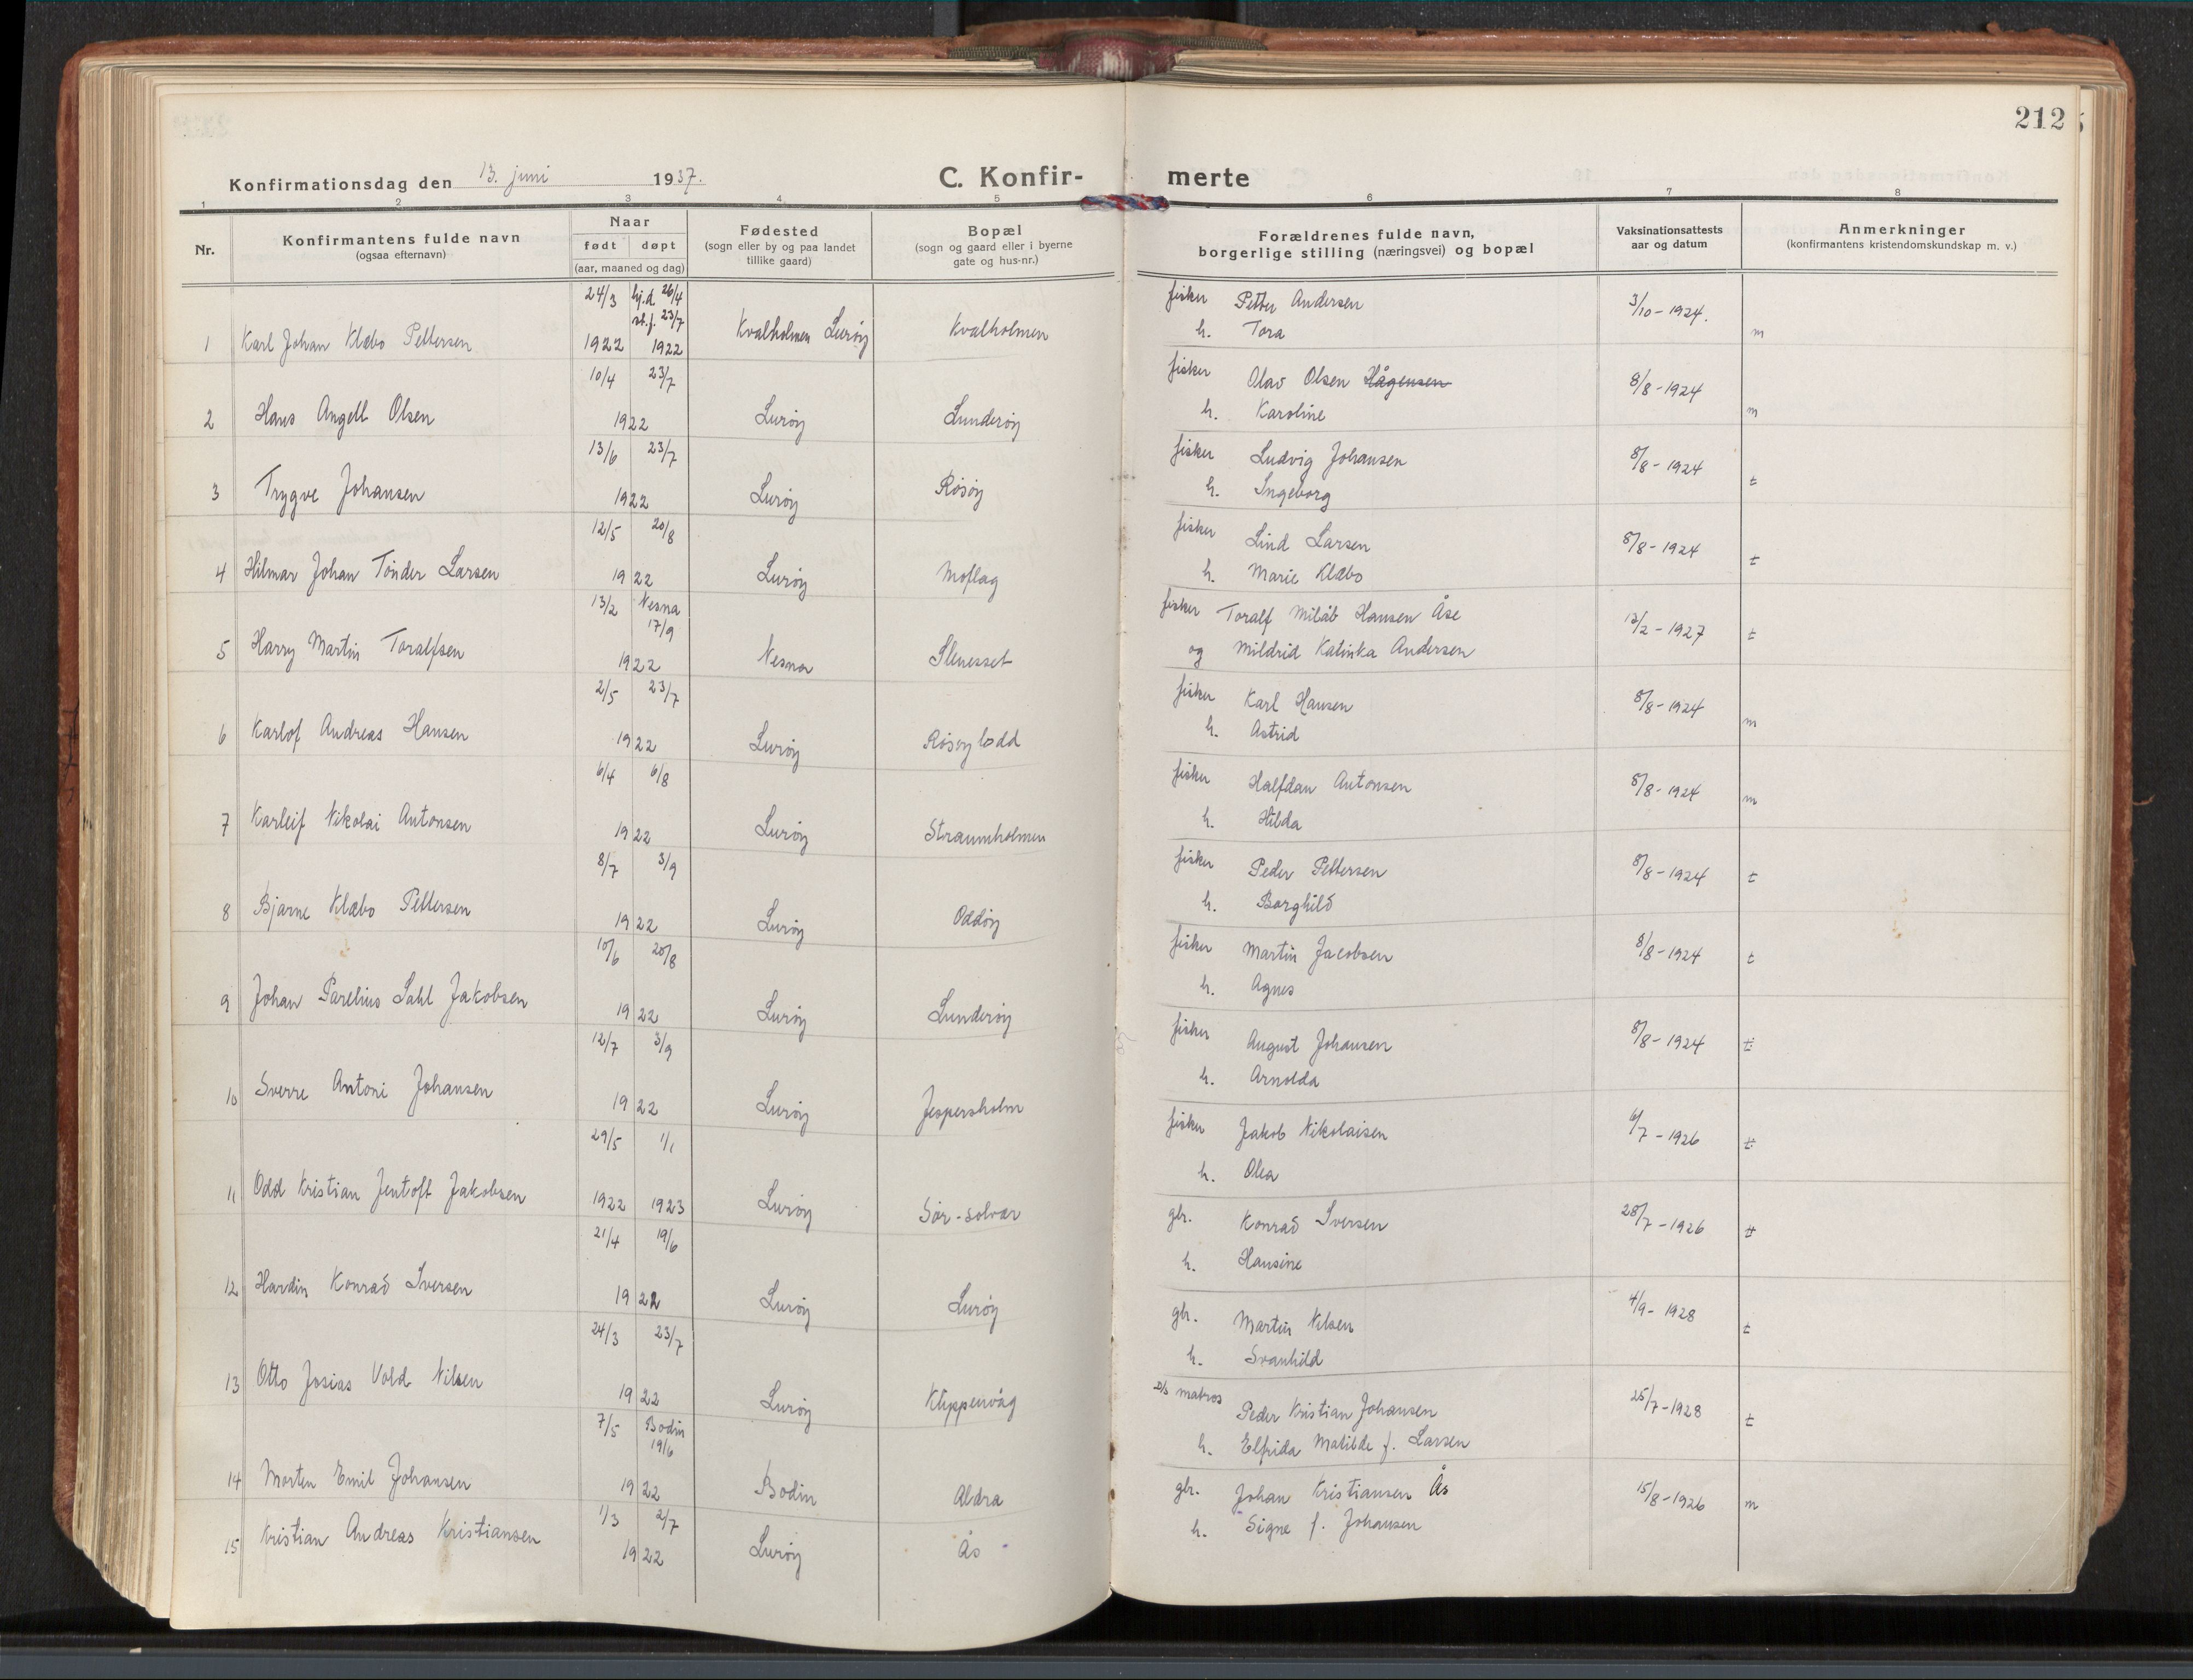 212
Konfirmationsdag den 13. juni 1937.
C. Konfir- merte
1 2 3 4 5 6 7 8
Nr.
Konfirmantens fulde navn
(ogsaa efternavn)
Naar
født døpt
(aar, maaned og dag)
Fødested
(sogn eller by og paa landet
tillike gaard)
Bopæl
(sogn og gaard eller i byerne
gate og hus-nr.)
Forældrenes fulde navn,
borgerlige stilling (næringsvei) og bopæl
Vaksinationsattests
aar og datum
Anmerkninger
(konfirmantens kristendomskundskap m. v.)
24/3 hj.d. 26/4 fisker Petter Andersen 3/10-1924.
st.f. 23/7
1 Karl Johan Klæbo Pettersen 1922 1922 Kvalholmen Lurøy Kvalholmen h. Tora m
10/4 23/7 fisker Olav Olsen Hågensen 8/8-1924
2 Hans Angell Olsen 1922 Lurøy Lunderøy h. Karoline m
13/6 23/7 fisker Ludvig Johansen 8/8-1924
3 Trygve Johansen 1922 Lurøy Røsøy h. Ingeborg t
12/5 20/8 fisker Lind Larsen 8/8-1924
4 Hilmar Johan Tønder Larsen 1922 Lurøy Moflag h. Marie Klæbo t
13/2 Nesna fisker Toralf Milåb Hansen Åse 12/2-1927
17/9
5 Harry Martin Toralfsen 1922 Nesna Slenesset og Mildrid Katinka Andersen t
2/5 23/7 fisker Karl Hansen 8/8-1924
6 Karlof Andreas Hansen 1922 Lurøy Røsøylodd h. Astrid m
6/4 6/8 fisker Halfdan Antonsen 8/8-1924
7 Karleif Nikolai Antonsen 1922 Lurøy Straumholmen h. Hilda m
8/7 3/9 fisker Peder Pettersen 8/8-1924
8 Bjarne Klæbo Pettersen 1922 Lurøy Oddøy h. Borghild t
10/6 20/8 fisker Martin Jacobsen 8/8-1924
9 Johan Parelius Dahl Jakobsen 1922 Lurøy Lunderøy h. Agnes t
12/7 3/9 fisker August Johansen 8/8-1924
10 Sverre Antoni Johansen 1922 Lurøy Jespersholm h. Arnolda t
29/5 1/1 fisker Jakob Nikolaisen 6/7-1926
11 Odd Kristian Jentoft Jakobsen 1922 1923 Lurøy Sør-solvær h. Olea t
21/4 19/6 gbr. Konrad Iversen 28/7-1926
12 Hardin Konrad Iversen 1922 Lurøy Lurøy h. Hansine tt
24/3 23/7 gbr. Martin Nilsen 4/9-1928
13 Otto Josias Vold Nilsen 1922 Lurøy Klippenvåg h. Svanhild t
7/5 Bodin D/S matros Peder Kristian Johansen 25/7-1928
19/6
14 Morten Emil Johansen 1922 Bodin Aldra h. Elfrida Matilde f. Larsen t
1/3 2/7 gbr. Johan Kristiansen Ås 15/8-1926
15 Kristian Andreas Kristiansen 1922 Lurøy Ås h. Signe f. Johansen m